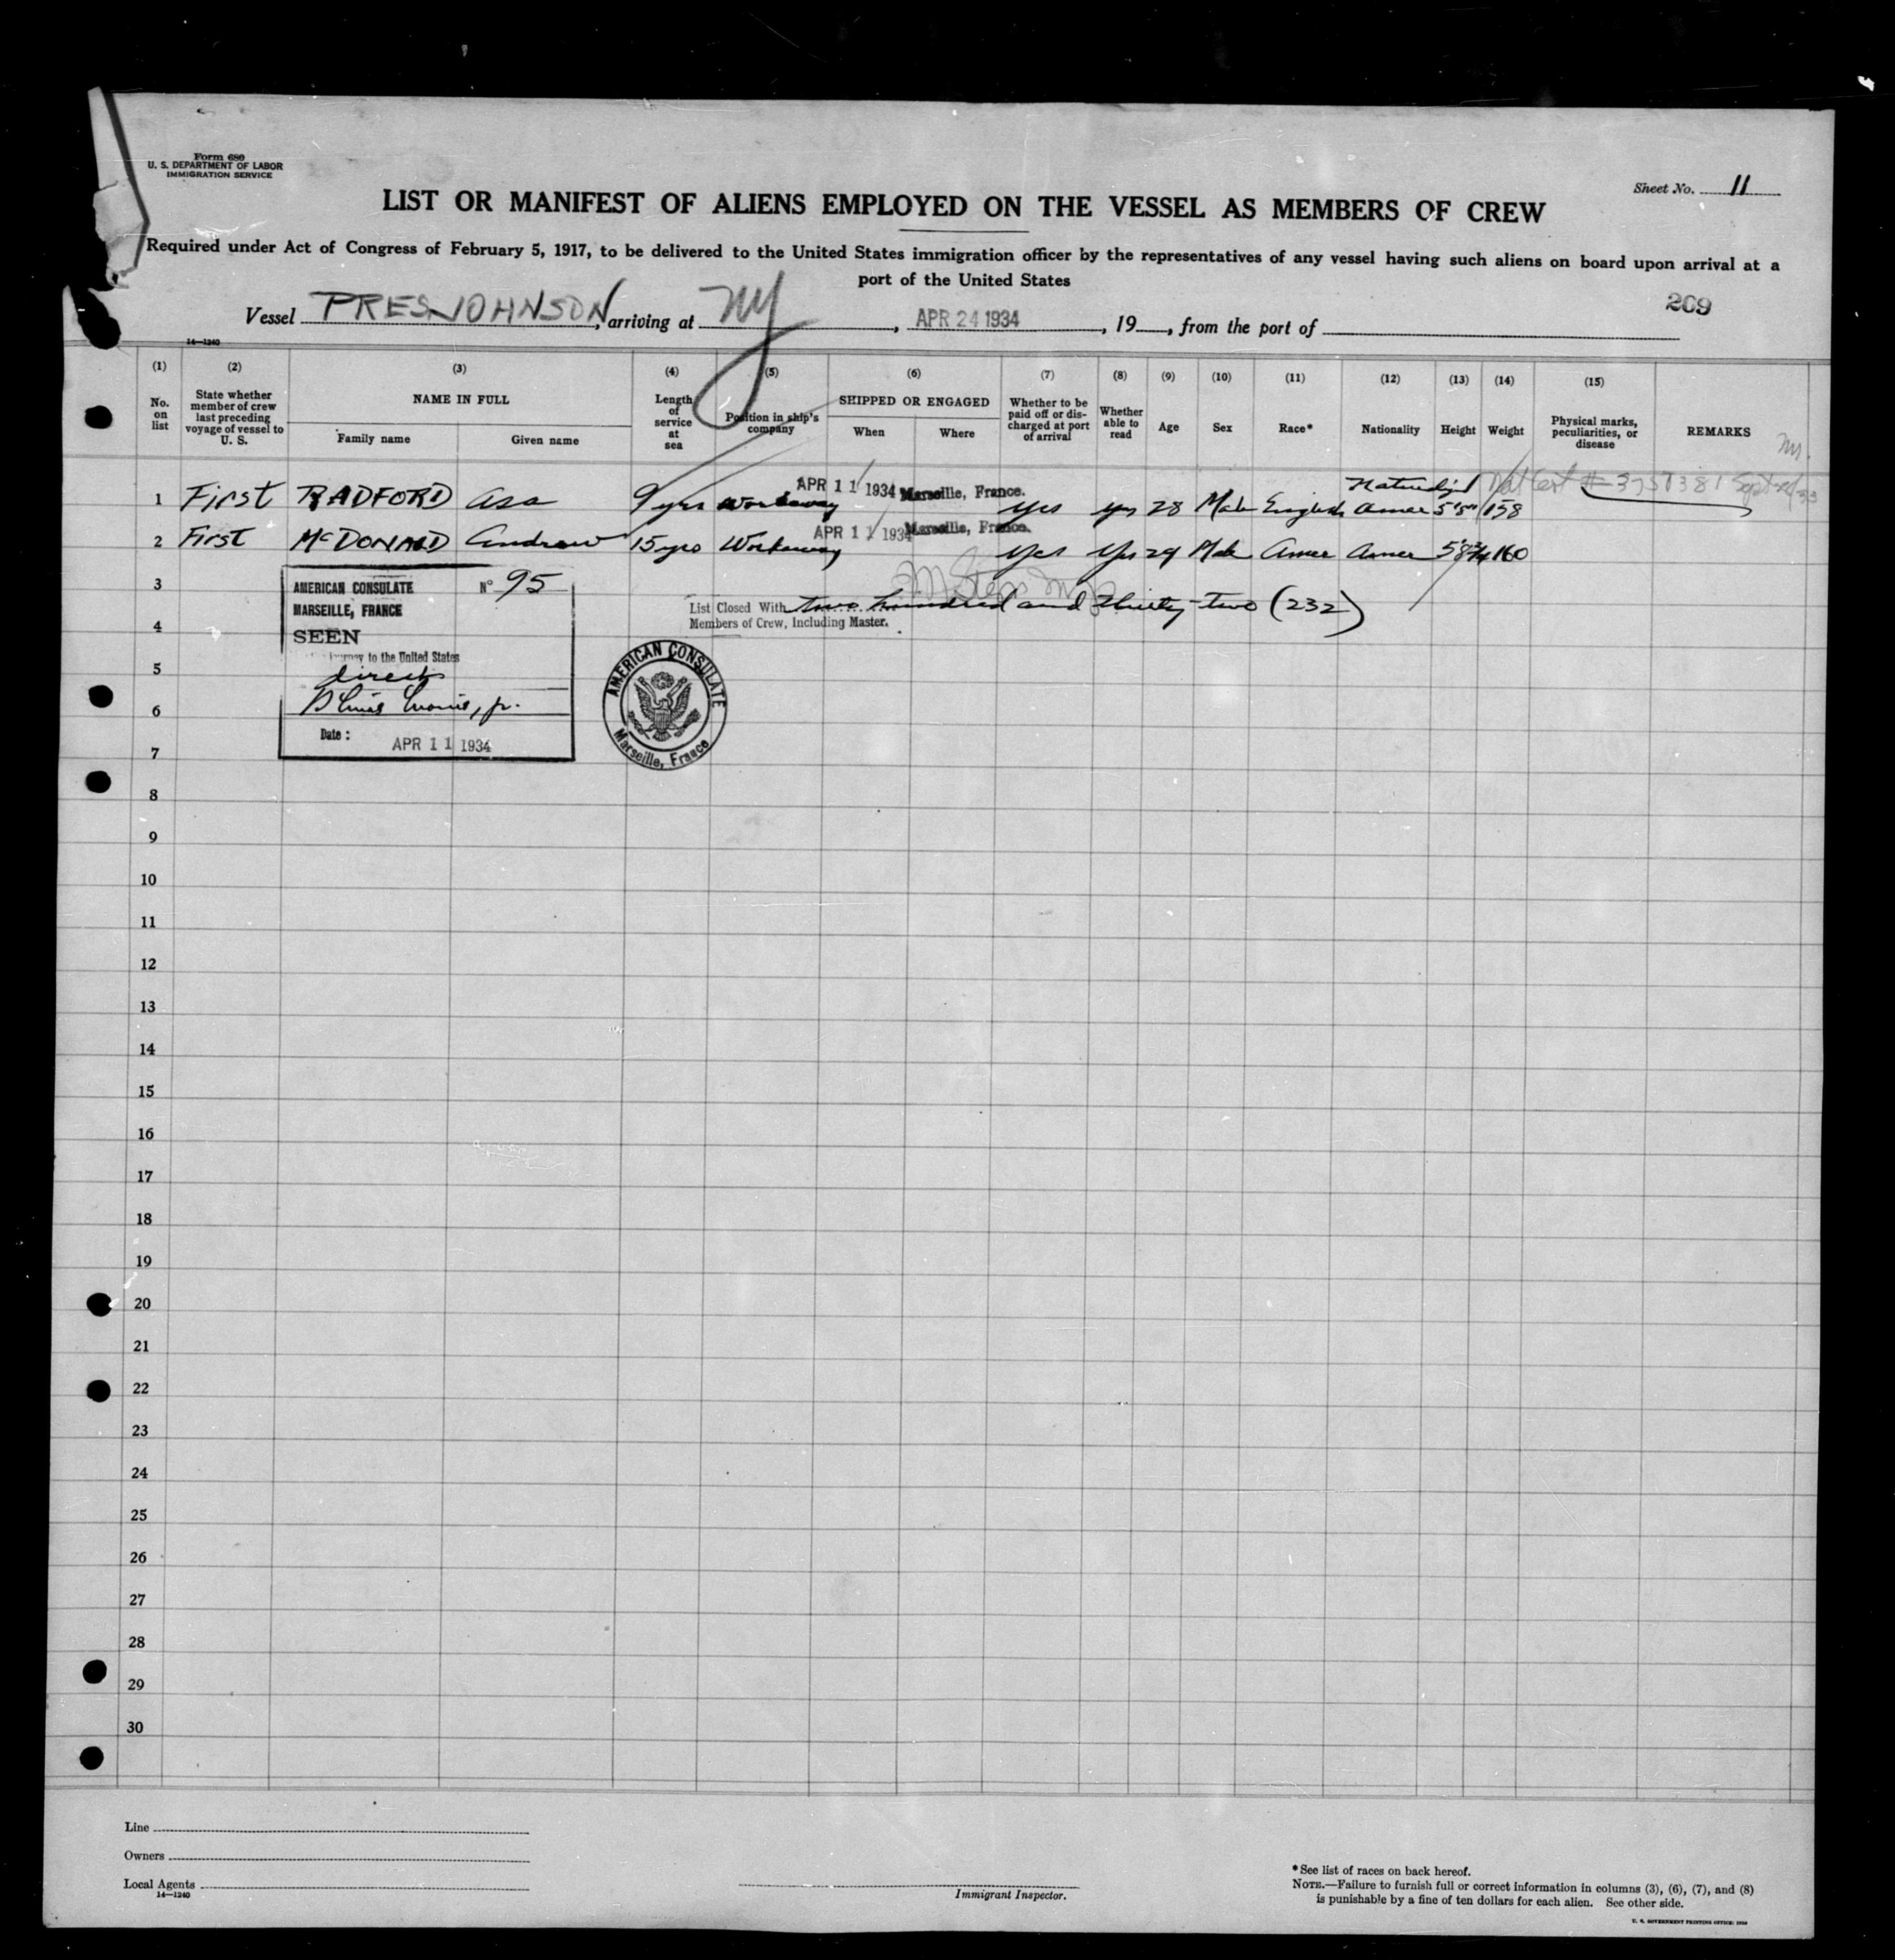 Form 680
U. S. DEPARTMENT OF LABOR
IMMIGRATION SERVICE
Sheet No. 11
LIST OR MANIFEST OF ALIENS EMPLOYED ON THE VESSEL AS MEMBERS OF CREW
Required under Act of Congress of February 5, 1917, to be delivered to the United States immigration officer by the representatives of any vessel having such aliens on board upon arrival at a
port of the United States
209
Vessel PRES JOHNSON, arriving at NY, APR 24 1934, 19, from the port of
14—1240
(1) (2) (3) (4) (5) (6) (7) (8) (9) (10) (11) (12) (13) (14) (15)
No. on list
State whether member of crew last preceding voyage of vessel to U. S.
NAME IN FULL
Family name
Given name
Length of service at sea
Position in ship's company
SHIPPED OR ENGAGED
When
Where
Whether to be paid off or discharged at port of arrival
Whether able to read
Age
Sex
Race*
Nationality
Height
Weight
Physical marks, peculiarities, or disease
REMARKS
1 First RADFORD Asa 9 yrs Workaway APR 11 1934 Marseille, France. Yes Yes 28 Male English Amer 5'5" 158 Nat Cert #
2 First McDONALD Andrew 15 yrs Workaway APR 11 1934 Marseille, France. Yes Yes 29 Male Amer Amer 5'8¾ 160
3
4
5
6
7
AMERICAN CONSULATE No 95
MARSEILLE, FRANCE
SEEN
journey to the United States
direct
Date: APR 11 1934
List Closed With two hundred and thirty-two (232)
Members of Crew, Including Master.
AMERICAN CONSULATE
Marseille, France
8
9
10
11
12
13
14
15
16
17
18
19
20
21
22
23
24
25
26
27
28
29
30
Line
Owners
Local Agents
14—1240
Immigrant Inspector.
*See list of races on back hereof.
NOTE.—Failure to furnish full or correct information in columns (3), (6), (7), and (8)
is punishable by a fine of ten dollars for each alien. See other side.